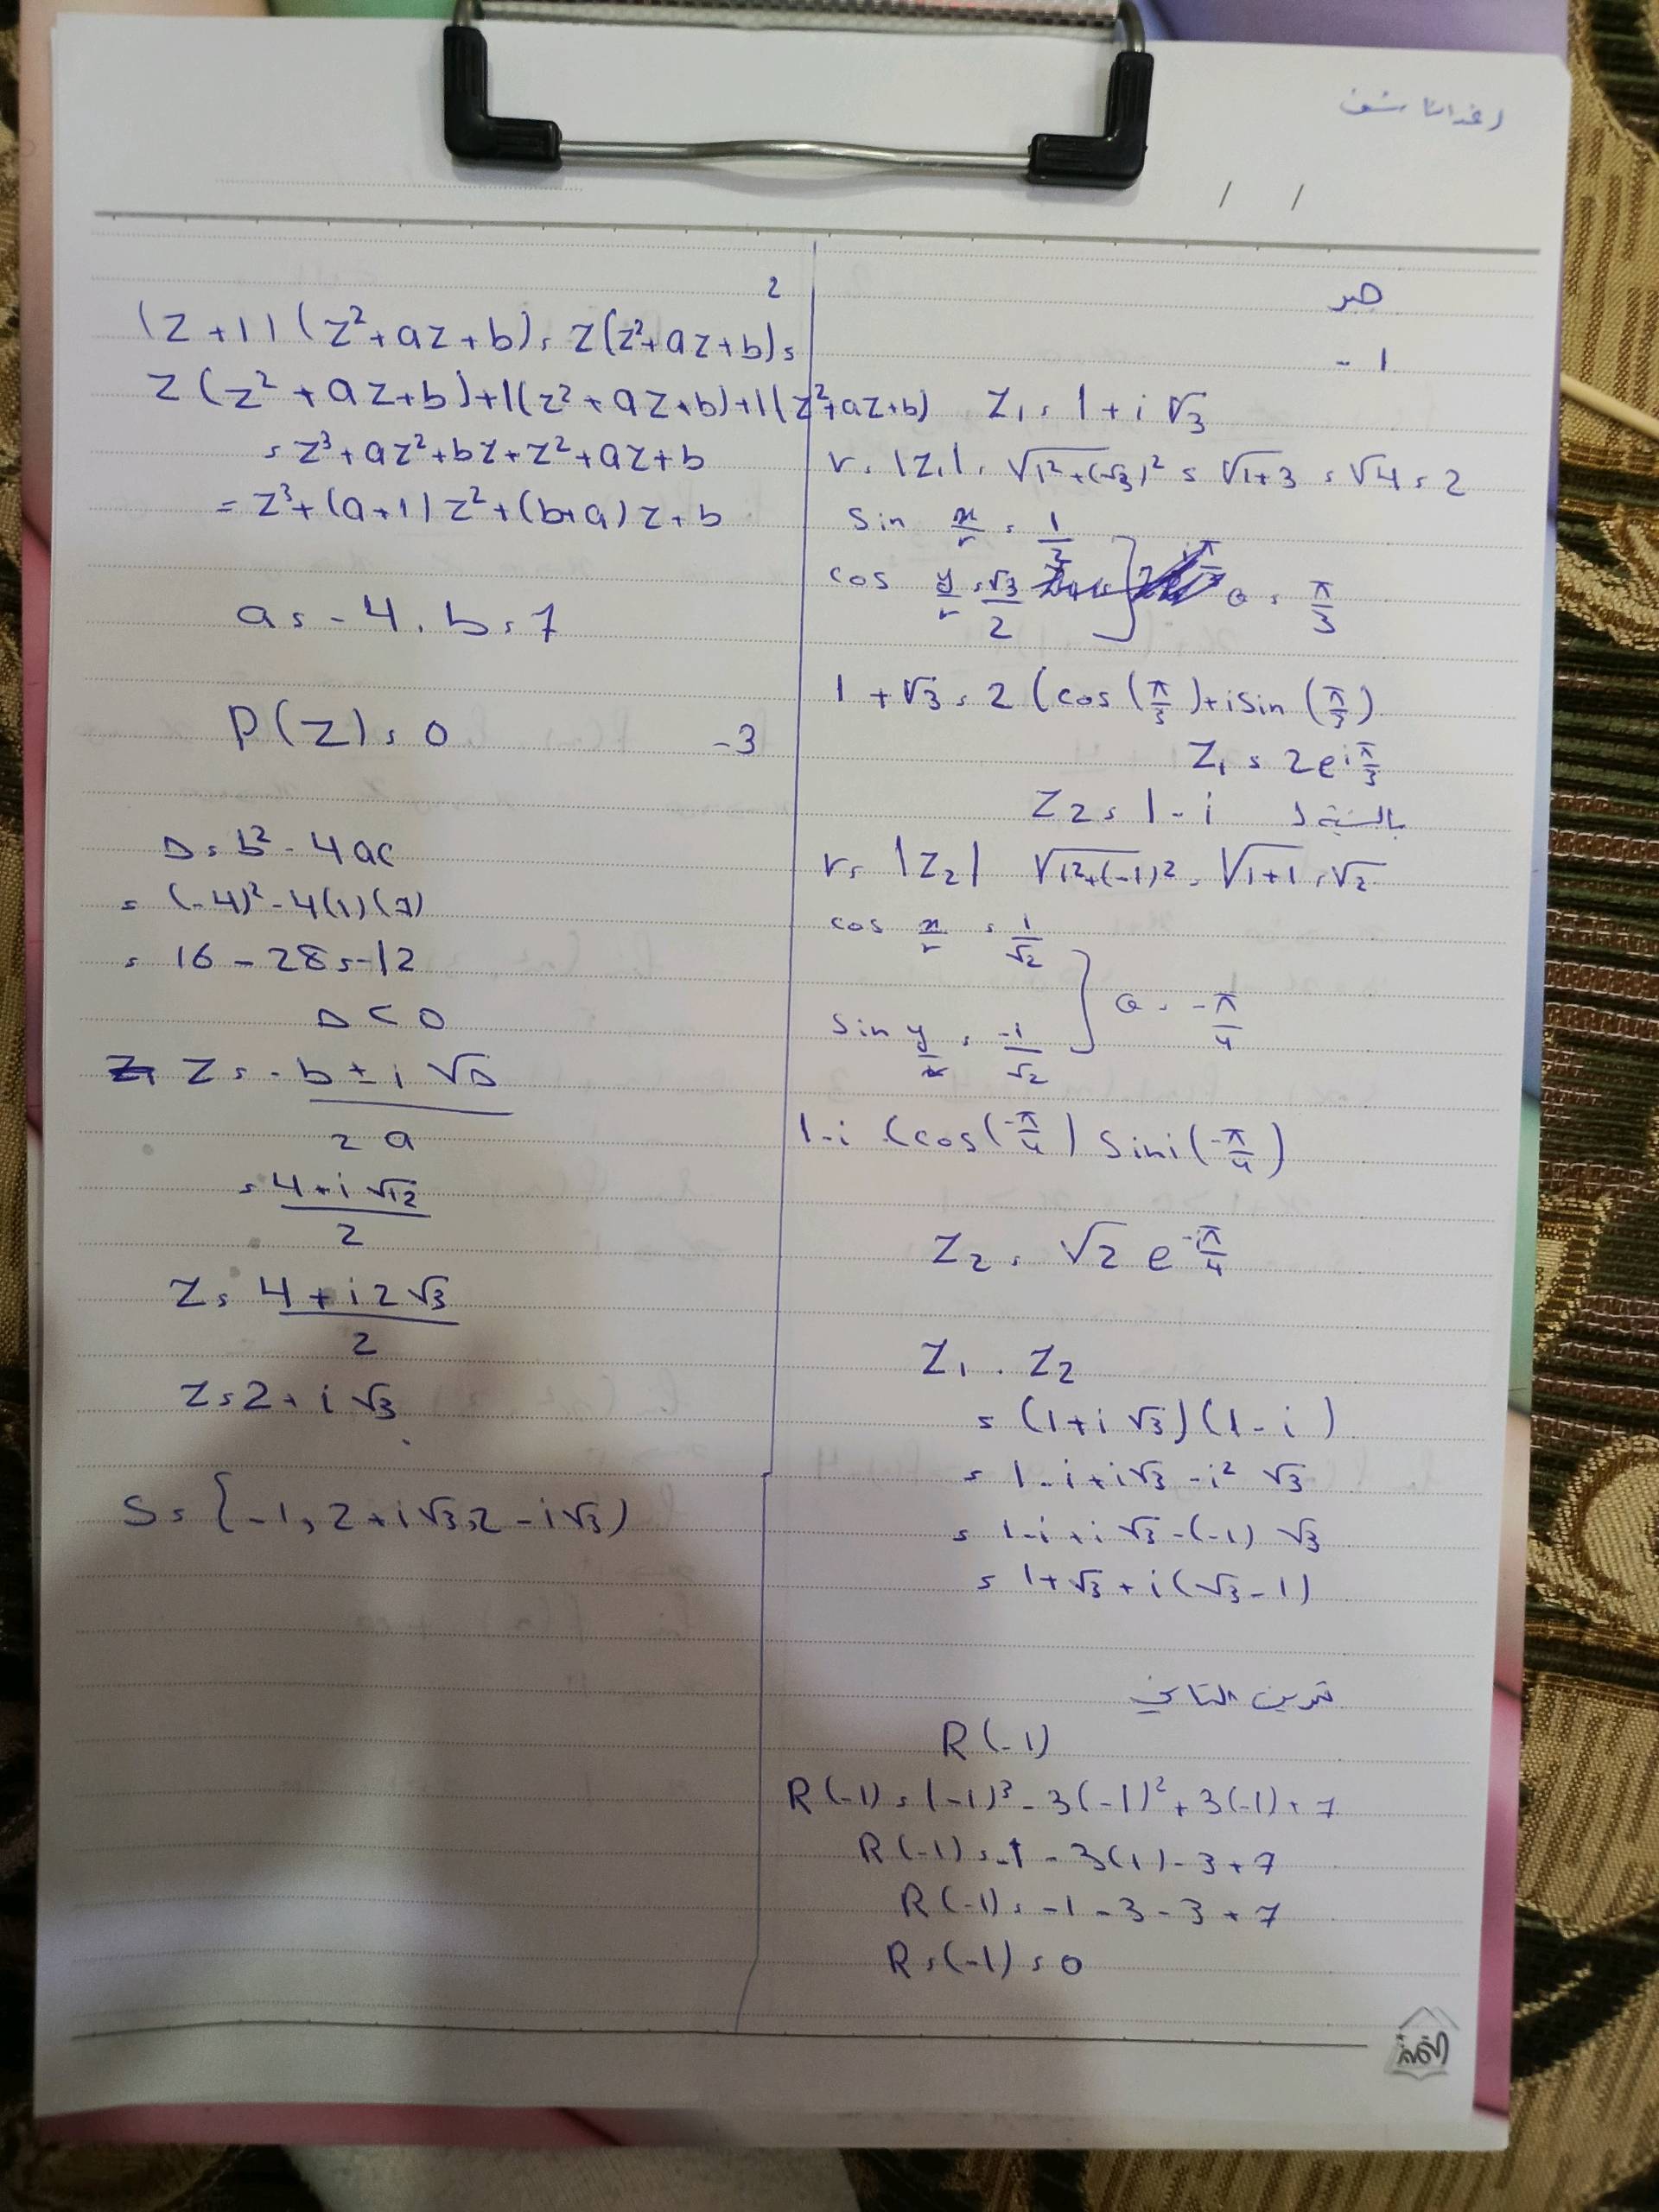 رغد انا شف
/ /
جبر
1 -
Z₁ = 1 + i √3
r = |Z₁| = √1² + (√3)² = √1+3 = √4 = 2
sin x/r = 1/2
cos y/r = √3/2 } θ = π/3
1 + √3 = 2 (cos (π/3) + i sin (π/3)
Z₁ = 2 e i π/3
بالنسبة ل Z2 = 1 - i
r = |Z2| √1² + (-1)² = √1+1 = √2
cos x/r = 1/√2
sin y/r = -1/√2 } θ = -π/4
1-i (cos(-π/4) sin i (-π/4)
Z2 = √2 e -iπ/4
Z₁ . Z2
= (1 + i √3) (1 - i)
= 1 - i + i√3 - i² √3
= 1 - i + i √3 - (-1) √3
= 1 + √3 + i (√3 - 1)
تمرين الثاني
R (-1)
R (-1) = (-1)³ - 3(-1)² + 3(-1) + 7
R (-1) = -1 - 3(1) - 3 + 7
R (-1) = -1 - 3 - 3 + 7
R = (-1) = 0
2
(Z + 1) (Z² + aZ + b) = Z(Z² + aZ + b) =
Z (Z² + aZ + b) + 1(Z² + aZ + b) + 1(Z² + aZ + b)
= Z³ + aZ² + bZ + Z² + aZ + b
= Z³ + (a + 1) Z² + (b + a) Z + b
a = -4 , b = 7
P(Z) = 0 -3
Δ = b² - 4ac
= (-4)² - 4(1)(7)
= 16 - 28 = -12
Δ < 0
Z = -b ± i √Δ / 2a
= 4 + i √12 / 2
Z = 4 + i 2 √3 / 2
Z = 2 + i √3
S = { -1, 2 + i√3, 2 - i√3 )